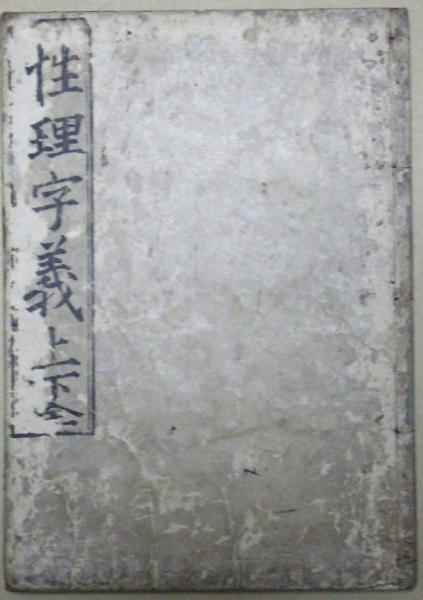 性理字義上下全